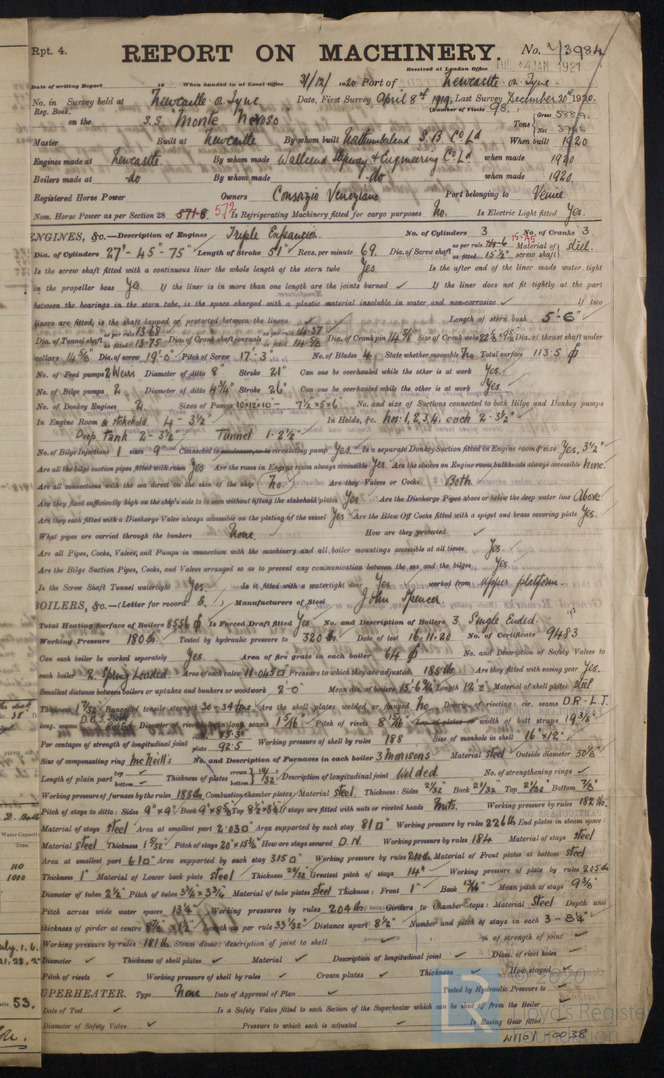 Rpt. 4.
REPORT ON MACHINERY.
No. 3984
Received at London Office
14 JAN. 1921
Date of writing Report 19 When handed in at Local Office 31/12/1920 Port of Newcastle-on-Tyne.
No. in Survey held at Newcastle o Tyne Date, First Survey April 8th 1919, Last Survey December 20th 1920.
Reg. Book. (Number of Visits 98.
on the S.S. Monte Nevoso Tons
Gross
Net
Master Built at Newcastle By whom built Northumberland S.B. Co Ld When built 1920
Engines made at Newcastle. By whom made Wallsend Slipway & Engineering Co Ld when made 1920
Boilers made at do By whom made do when made 1920.
Registered Horse Power Owners Consorzio Veneziano Port belonging to Venice.
Nom. Horse Power as per Section 28 571.8 572 Is Refrigerating Machinery fitted for cargo purposes No. Is Electric Light fitted Yes.
ENGINES, &c.—Description of Engines Triple Expansion No. of Cylinders 3 No. of Cranks 3
Dia. of Cylinders 27"-45"-75" Length of Stroke 51" Revs. per minute 69. Dia. of Screw shaft as per rule as fitted 15½" Material of screw shaft steel.
Is the screw shaft fitted with a continuous liner the whole length of the stern tube Yes. Is the after end of the liner made water tight
in the propeller boss Yes. If the liner is in more than one length are the joints burned ✓ If the liner does not fit tightly at the part
between the bearings in the stern tube, is the space charged with a plastic material insoluble in water and non-corrosive ✓ If two
liners are fitted, is the shaft lapped or protected between the liners ✓ Length of stern bush 5'-6"
Dia. of Tunnel shaft as per rule 13.68 as fitted 13.75 Dia. of Crank shaft journals as per rule 14.37 as fitted 14⅝ Dia. of Crank pin 14⅝ Size of Crank webs Dia. of thrust shaft under
collars 14⅝ Dia. of screw 19'-0" Pitch of Screw 17'-3" No. of Blades 4 State whether moveable No Total surface 113.5
No. of Feed pumps 2 Weirs Diameter of ditto 8" Stroke 21" Can one be overhauled while the other is at work Yes.
No. of Bilge pumps 2 Diameter of ditto 4¾" Stroke 26" Can one be overhauled while the other is at work Yes.
No. of Donkey Engines 2 Sizes of Pumps 10×12×10 - 7½×5×6 No. and size of Suctions connected to both Bilge and Donkey pumps
In Engine Room & Stokehold 4-3½" In Holds, &c. Nos: 1, 2, 3, 4, each 2-3½"
Deep Tank 2-3½" Tunnel 1-2½"
No. of Bilge Injections 1 sizes 9" Connected to circulating pump Yes. Is a separate Donkey Suction fitted in Engine room & size Yes, 3½"
Are all the bilge suction pipes fitted with roses Yes Are the roses in Engine room always accessible Yes. Are the sluices on Engine room bulkheads always accessible None.
Are all connections with the sea direct on the skin of the ship No. Are they Valves or Cocks Both.
Are they fixed sufficiently high on the ship's side to be seen without lifting the stokehold plates Yes Are the Discharge Pipes above or below the deep water line Above
Are they each fitted with a Discharge Valve always accessible on the plating of the vessel Yes Are the Blow Off Cocks fitted with a spigot and brass covering plate Yes.
What pipes are carried through the bunkers None. How are they protected ✓
Are all Pipes, Cocks, Valves, and Pumps in connection with the machinery and all boiler mountings accessible at all times Yes.
Are the Bilge Suction Pipes, Cocks, and Valves arranged so as to prevent any communication between the sea and the bilges Yes.
Is the Screw Shaft Tunnel watertight Yes. Is it fitted with a watertight door Yes. worked from upper platform.
BOILERS, &c.—(Letter for record S.) Manufacturers of Steel John Spencer
Total Heating Surface of Boilers 8556 Is Forced Draft fitted Yes. No. and Description of Boilers 3 Single Ended.
Working Pressure 180 lb. Tested by hydraulic pressure to 320 lb. Date of test 16.11.20 No. of Certificate 9483
Can each boiler be worked separately Yes. Area of fire grate in each boiler 64 No. and Description of Safety Valves to
each boiler 2 Spring Loaded Area of each valve 11.045 Pressure to which they are adjusted 185 lb Are they fitted with easing gear Yes.
Smallest distance between boilers or uptakes and bunkers or woodwork 2'-0" Mean dia. of boilers Length Material of shell plates steel
Thickness Range of tensile strength 30-34 tons Are the shell plates welded or flanged No Descrip. of riveting: cir. seams D.R.-L.T.
long. seams Diameter of rivet holes in long. seams 1 5/16" Pitch of rivets width of butt straps 19¾"
Per centages of strength of longitudinal joint plate Working pressure of shell by rules 188 Size of manhole in shell 16"×12"
Size of compensating ring McNeill's No. and Description of Furnaces in each boiler 3 Morisons Material Steel Outside diameter
Length of plain part top bottom Thickness of plates crown bottom Description of longitudinal joint Welded No. of strengthening rings ✓
Working pressure of furnace by the rules 185 lb Combustion chamber plates: Material Steel. Thickness: Sides 21/32" Back 21/32 Top 21/32 Bottom ⅞"
Pitch of stays to ditto: Sides 9"×9" Back Top If stays are fitted with nuts or riveted heads Nuts. Working pressure by rules 182 lb
Material of stays steel Area at smallest part 2.03 Area supported by each stay 81 Working pressure by rules 226 lb End plates in steam space
Material Steel Thickness Pitch of stays How are stays secured D.N. Working pressure by rules 184 Material of stays steel
Area at smallest part Area supported by each stay 315 Working pressure by rules Material of Front plates at bottom steel
Thickness 1" Material of Lower back plate steel Thickness Greatest pitch of stays 14" Working pressure of plate by rules
Diameter of tubes 2½" Pitch of tubes 3¾"×3¾ Material of tube plates Steel Thickness: Front 1" Back Mean pitch of stays
Pitch across wide water spaces 13¾" Working pressures by rules 204 lb Girders to Chamber tops: Material Steel Depth and
thickness of girder at centre Length as per rule Distance apart 8½" Number and pitch of stays in each
Working pressure by rules 181 lb Steam dome: description of joint to shell ✓ % of strength of joint
Diameter ✓ Thickness of shell plates ✓ Material ✓ Description of longitudinal joint ✓ Diam. of rivet holes ✓
Pitch of rivets ✓ Working pressure of shell by rules ✓ Crown plates ✓ Thickness How stayed
SUPERHEATER. Type None Date of Approval of Plan ✓ Tested by Hydraulic Pressure to
Date of Test ✓ Is a Safety Valve fitted to each Section of the Superheater which can be shut off from the Boiler
Diameter of Safety Valve ✓ Pressure to which each is adjusted ✓ Is Easing Gear fitted
© 2020
Lloyd's Register
Foundation
W1101-0038